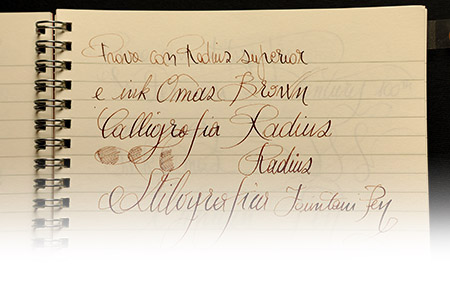 Prova con Radius superior
e ink Omas Brown
Calligrafia Radius
Radius
Stilografica Fountain Pen